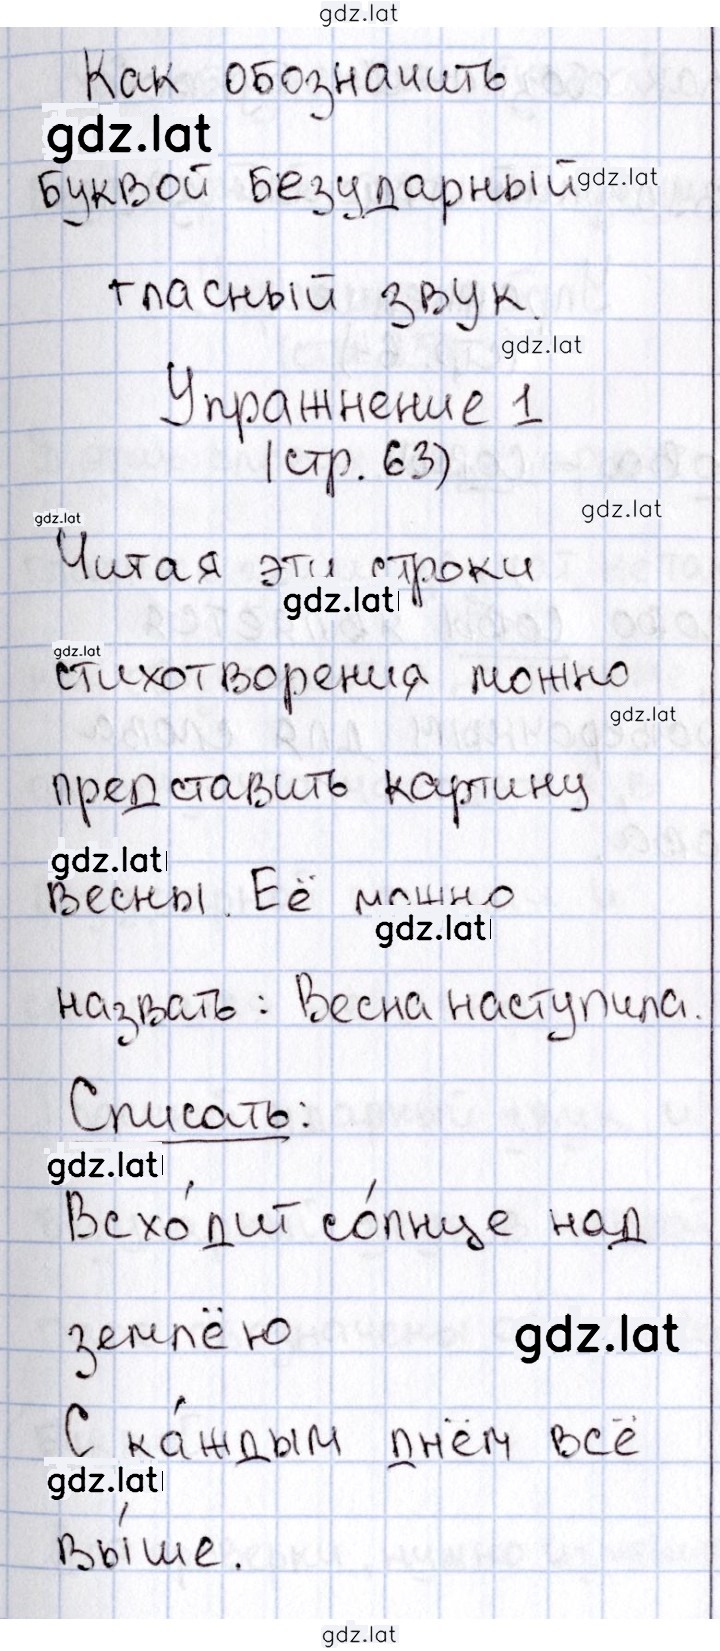 gdz.lat
Как обозначить
gdz.lat
буквой безударный gdz.lat
гласный звук.
gdz.lat
Упражнение 1
(стр. 63)
gdz.lat
gdz.lat
Читая эти строки
gdz.lat
gdz.lat
стихотворения можно
gdz.lat
представить картину
gdz.lat
весны. Её можно
gdz.lat
назвать: Весна наступила.
Списать:
gdz.lat
Всхо́дит со́лнце над
землёю gdz.lat
С ка́ждым днём всё
gdz.lat
вы́ше.
gdz.lat